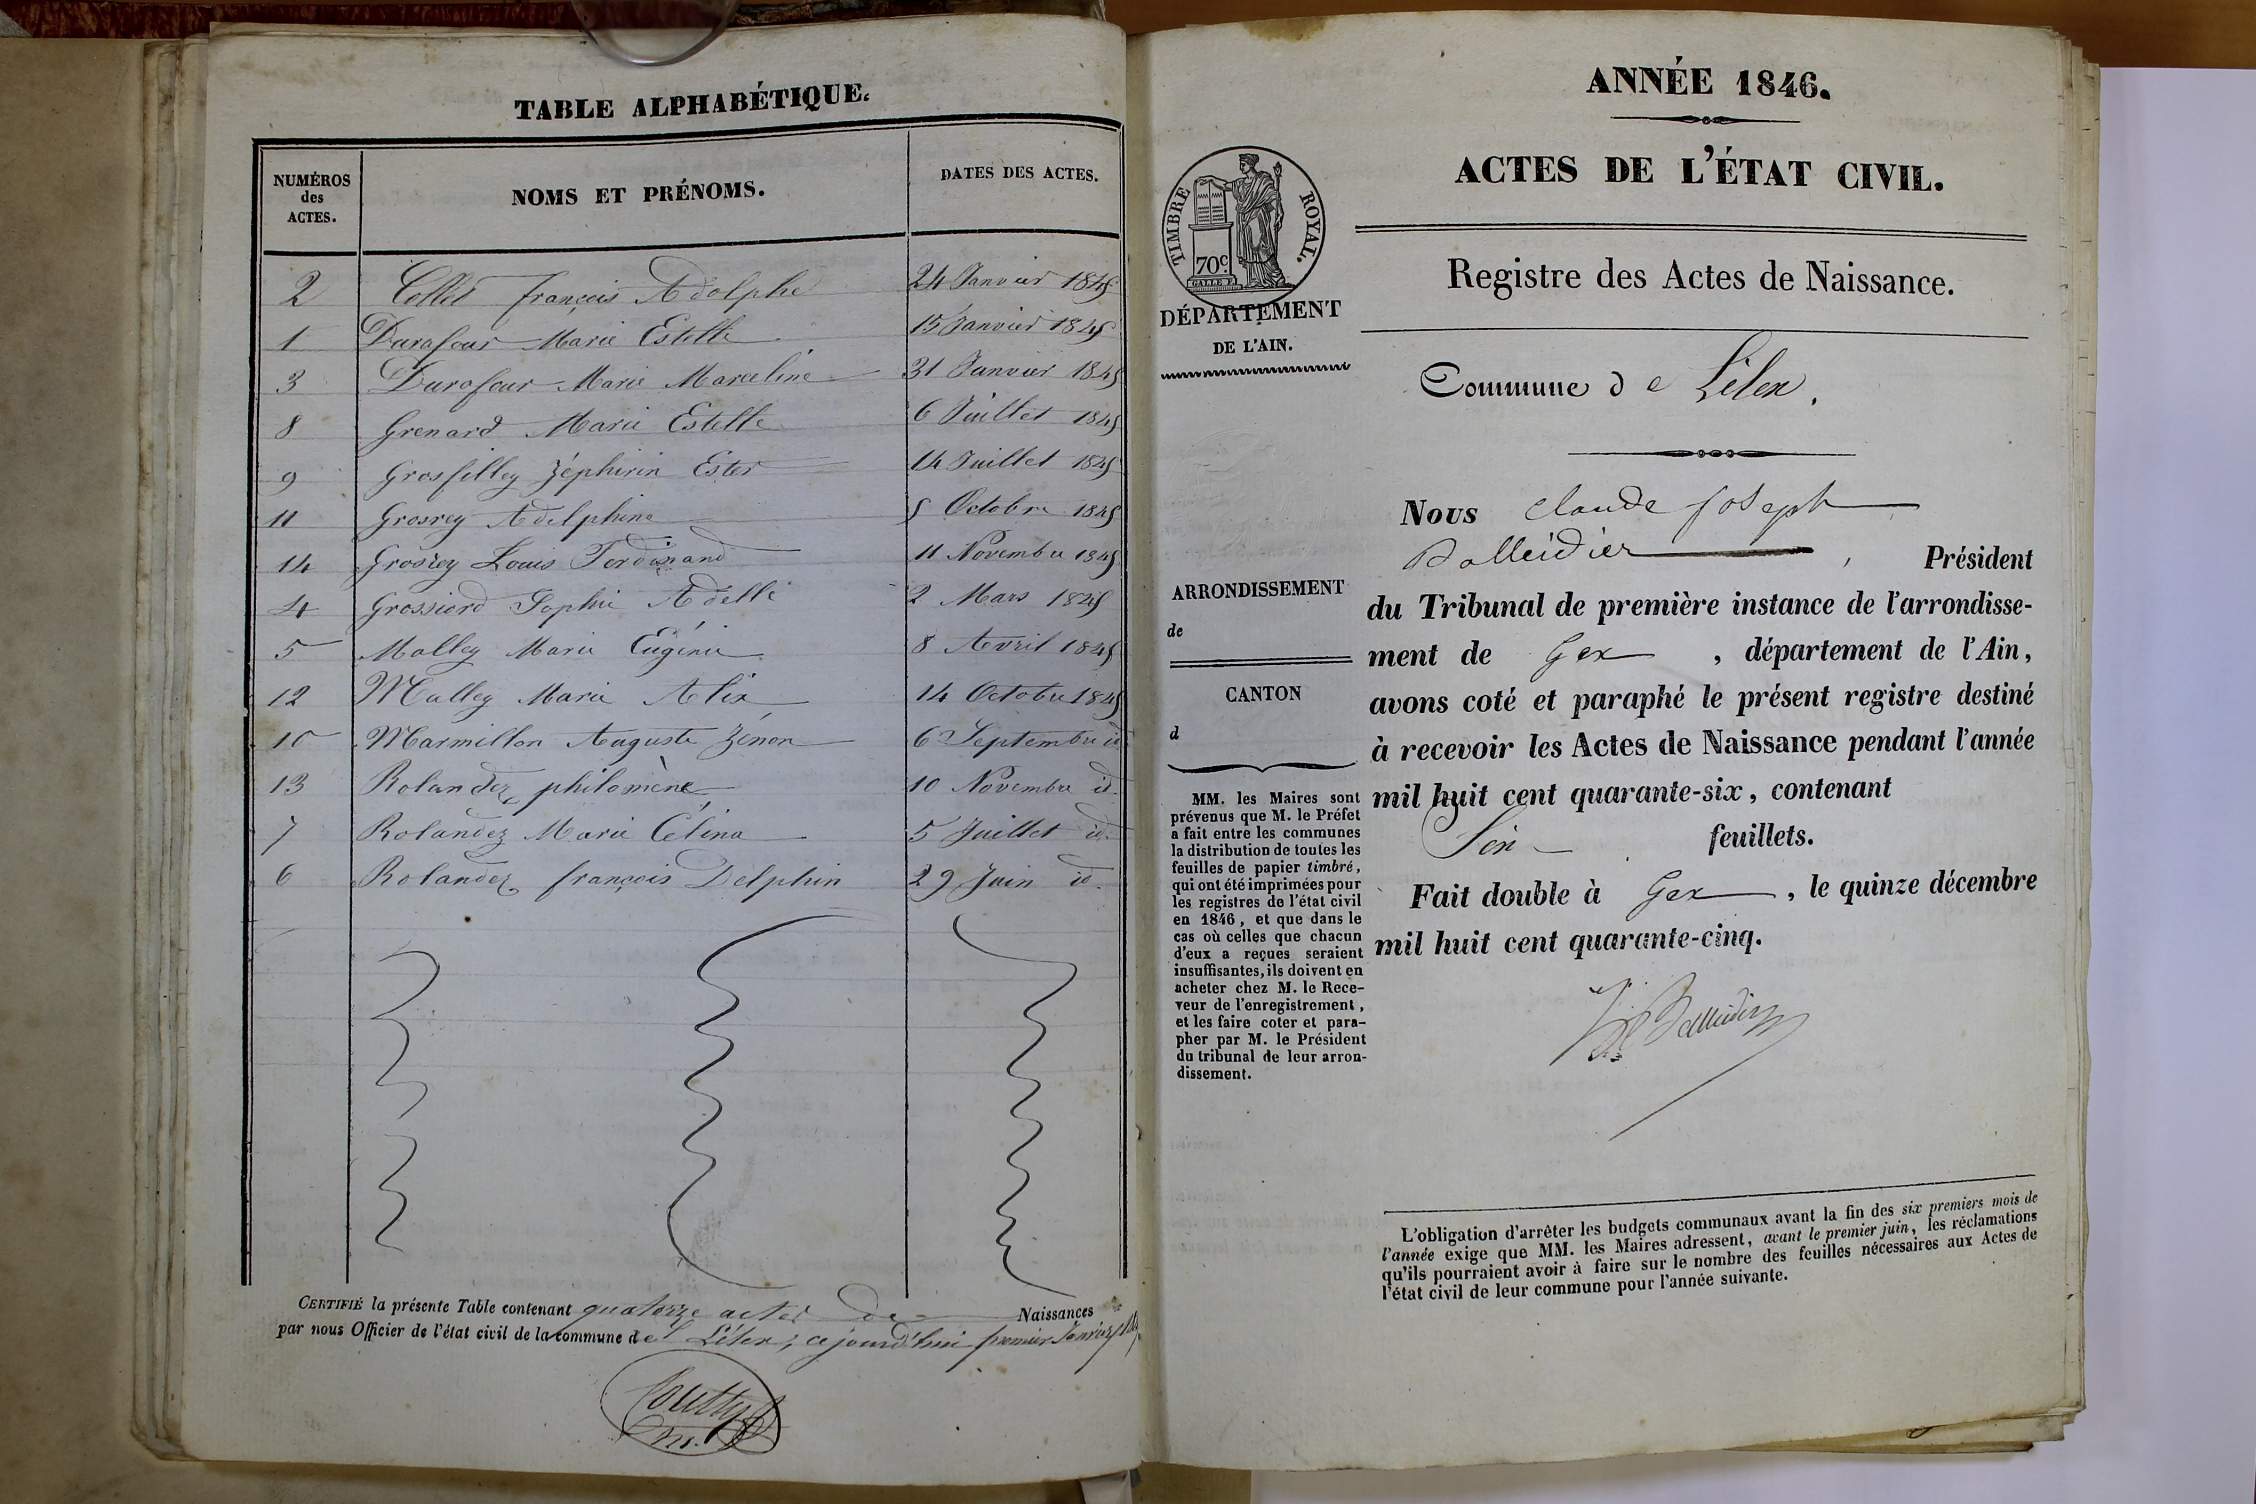 TABLE ALPHABÉTIQUE.
NUMÉROS
des
ACTES.
NOMS ET PRÉNOMS.
DATES DES ACTES.
2 Collet françois Adolphe 24 Janvier 1845
1 Durafour Marie Estelle 15 Janvier 1845
3 Durafour Marie Marceline 31 Janvier 1845
8 Grenard Marie Estelle 6 Juillet 1845
9 Grosfilley Zéphirin Ester 14 Juillet 1845
11 Grosrey Adelphine 5 Octobre 1845
14 Grosrey Louis Ferdinand 11 Novembre 1845
4 Grossiord Sophie Adelle 2 Mars 1845
5 Molley Marie Eugénie 8 Avril 1845
12 Malley Marie Alix 14 Octobre 1845
10 Marmillon Auguste Zénon 6 Septembre id
13 Rolandez philomène 10 Novembre id.
7 Rolandez Marie Célina 5 Juillet id.
6 Rolandez françois Delphin 29 Juin id.
CERTIFIÉ la présente Table contenant quatorze actes de Naissances
par nous Officier de l'état civil de la commune de Lélex, ce jourd'hui premier Janvier
ANNÉE 1846.
ACTES DE L'ÉTAT CIVIL.
TIMBRE ROYAL.
70c.
DÉPARTEMENT
DE L'AIN.
Registre des Actes de Naissance.
Commune de Lélex.
ARRONDISSEMENT
de
CANTON
d
MM. les Maires sont
prévenus que M. le Préfet
a fait entre les communes
la distribution de toutes les
feuilles de papier timbré,
qui ont été imprimées pour
les registres de l'état civil
en 1846, et que dans le
cas où celles que chacun
d'eux a reçues seraient
insuffisantes, ils doivent en
acheter chez M. le Rece-
veur de l'enregistrement,
et les faire coter et para-
pher par M. le Président
du tribunal de leur arron-
dissement.
Nous Claude Joseph
Balleidier, Président
du Tribunal de première instance de l'arrondisse-
ment de Gex, département de l'Ain,
avons coté et paraphé le présent registre destiné
à recevoir les Actes de Naissance pendant l'année
mil huit cent quarante-six, contenant
Six feuillets.
Fait double à Gex, le quinze décembre
mil huit cent quarante-cinq.
Balleidier
L'obligation d'arrêter les budgets communaux avant la fin des six premiers mois de
l'année exige que MM. les Maires adressent, avant le premier juin, les réclamations
qu'ils pourraient avoir à faire sur le nombre des feuilles nécessaires aux Actes de
l'état civil de leur commune pour l'année suivante.